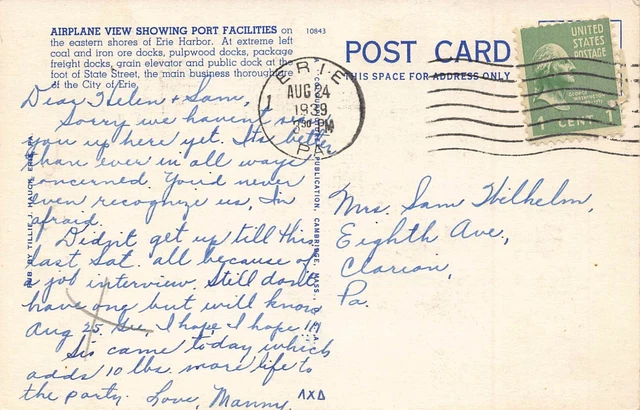 AIRPLANE VIEW SHOWING PORT FACILITIES on
the eastern shores of Erie Harbor. At extreme left
coal and iron ore docks, pulpwood docks, package
freight docks, grain elevator and public dock at the
foot of State Street, the main business thoroughfare
of the City of Erie.
10843
POST CARD
THIS SPACE FOR ADDRESS ONLY
ERIE
AUG 24
1939
PM
PA.
UNITED
STATES
POSTAGE
1 CENT 1
PUB. BY TILLIE J. HAUCH, ERIE, PA.
PUBLICATION, CAMBRIDGE, MASS.,
Dear Helen & Sam,
Sorry we haven't seen
you up here yet. Its better
than ever in all ways
concerned. You'd never
even recognize us, I'm
afraid.
Didn't get up till this
last Sat. all because of
a job interview. Still don't
have one but will know
Aug 25. I hope I hope !!!
Sis came today which
adds 10 lbs. more life to
the party. Love, Manny.
ΛΧΔ
Mrs. Sam Wilhelm,
Eighth Ave.,
Clarion,
Pa.